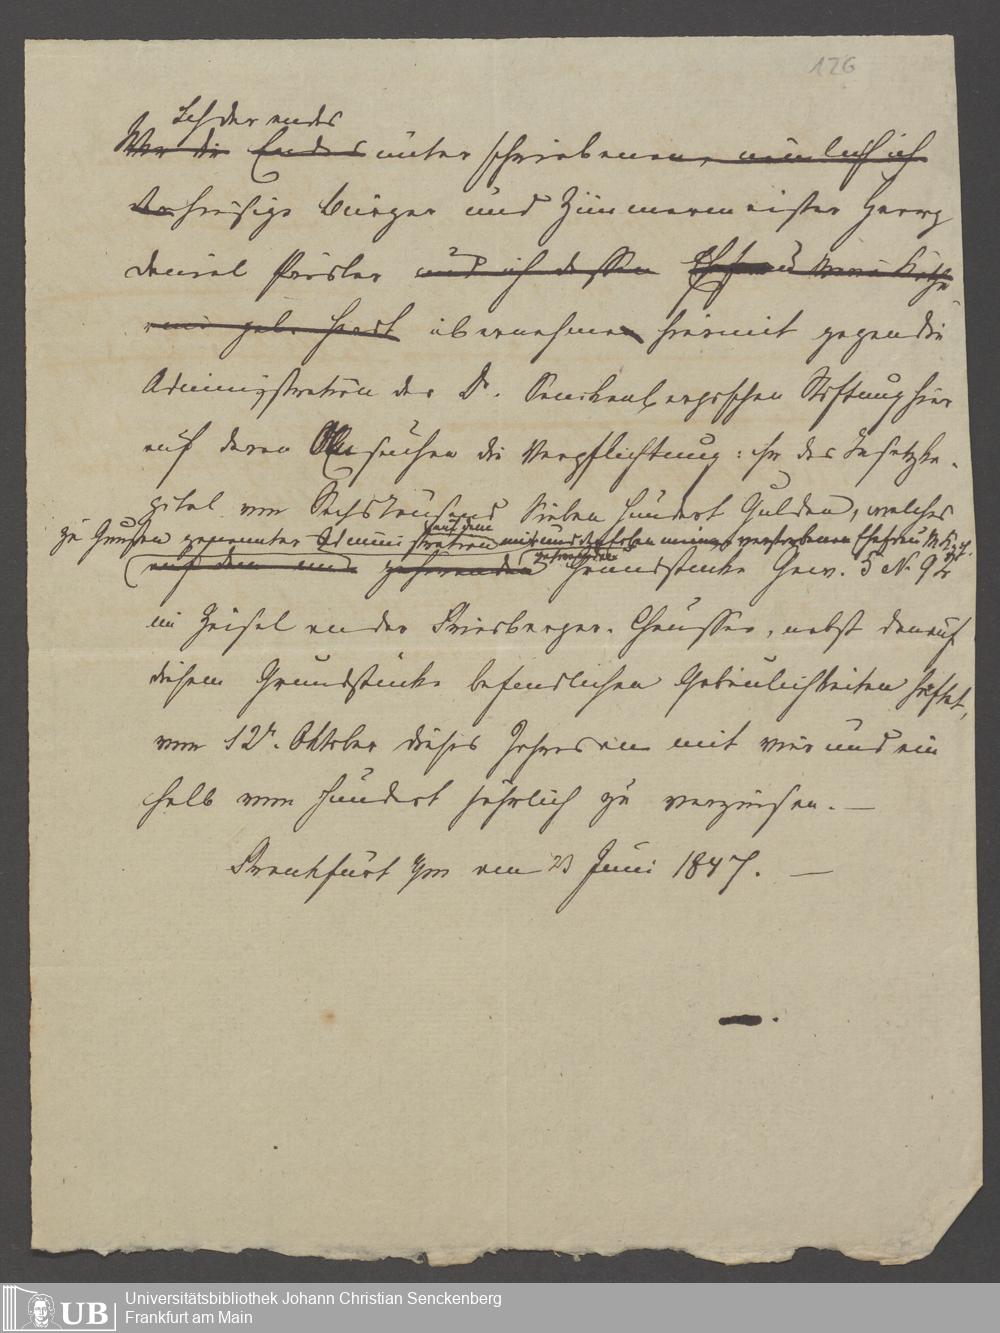 126
Ich der endes
Wir die Endes unterschriebenen, nämlich ich
der hiesige Bürger und Zimmermeister Georg
Daniel und ich dessen Ehefrau
geb. übernehmen hiermit gegen die
Administration der Dr. Senckenbergischen Stiftung hier
auf deren Ansuchen die Verpflichtung: ihr das Insatzka-
pital von Sechstausend Sieben Hundert Gulden, welches
zu Gunsten genannter Administration auf dem mir und meiner verstorbenen Ehefrau
auf dem uns gehörenden Grundstücke Gew. 5 N. 92
im an der Friedberger-Chaussee, nebst den auf
diesem Grundstücke befindlichen Gebäulichkeiten haftet,
vom 12t. Oktober dieses Jahres an mit vier und ein
halb vom Hundert jährlich zu verzinsen. —
Frankfurt a/m den 23 Juni 1847. —
UB
Universitätsbibliothek Johann Christian Senckenberg
Frankfurt am Main